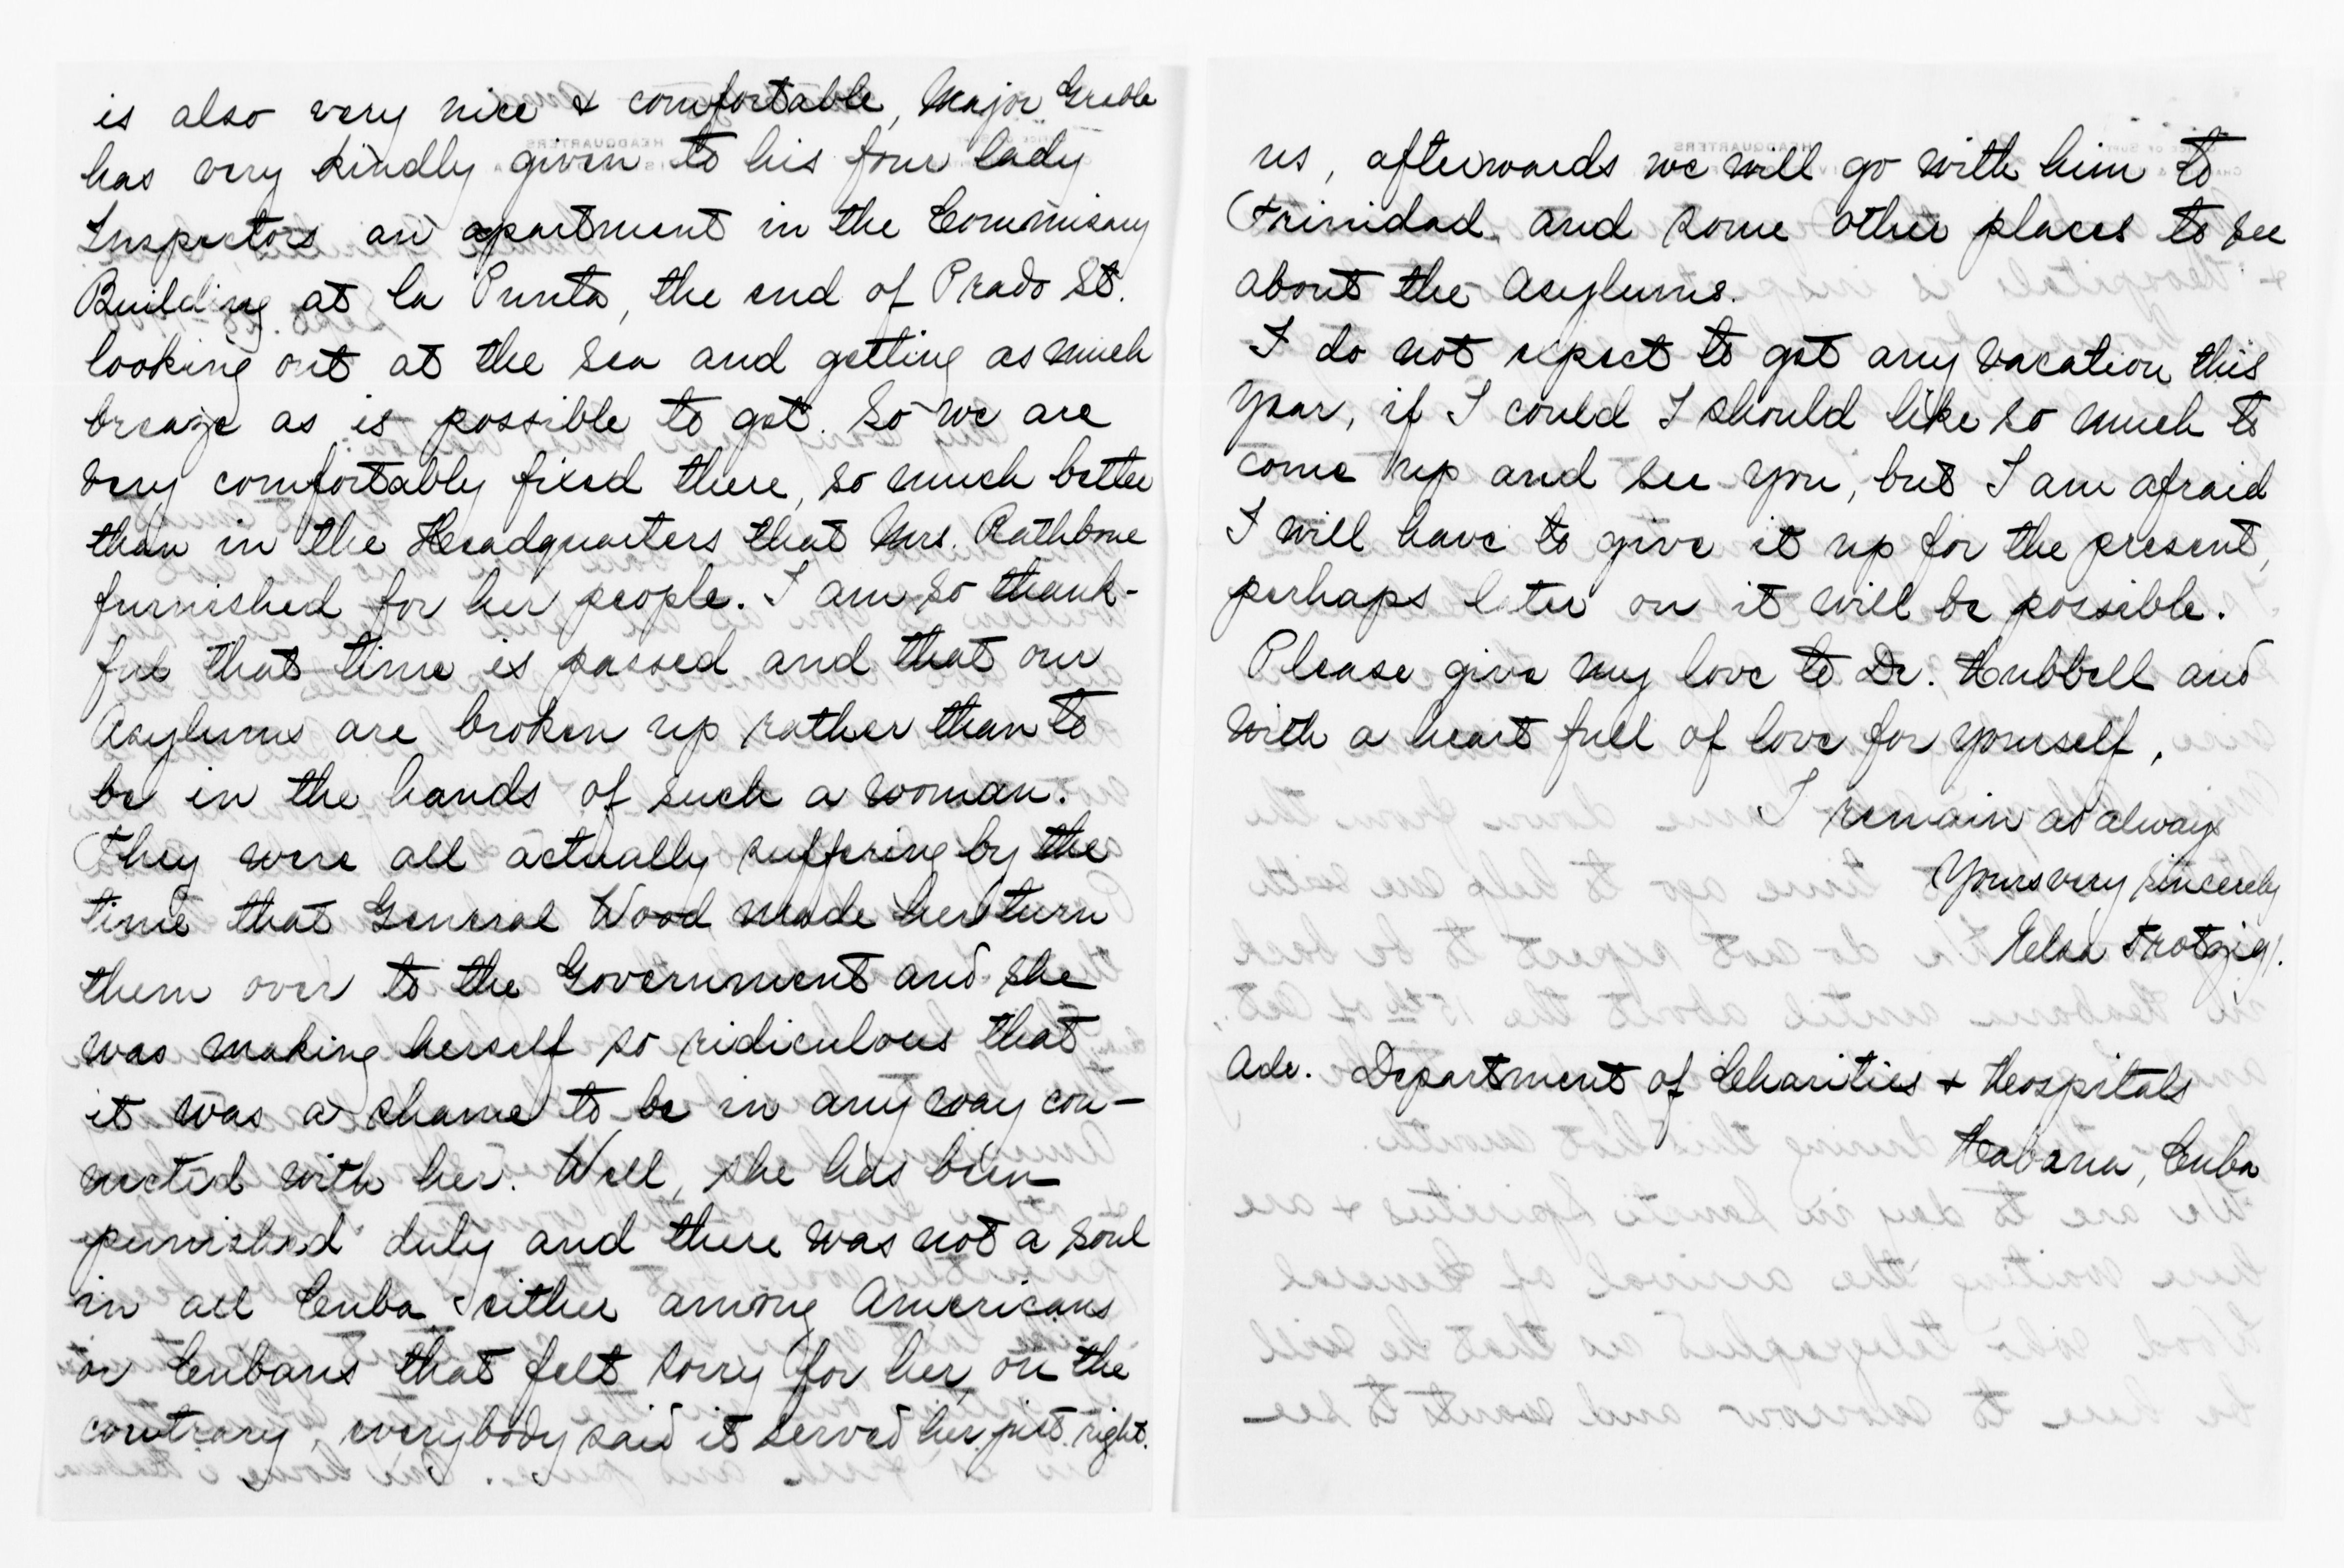 is also very nice & comfortable, Major Greble
has very kindly given to his four lady
Inspectors an apartment in the Commisary
Building at la Punta, the end of Prado St.
looking out at the sea and getting as much
breaze as is possible to get. So we are
very comfortably fixed there, so much better
than in the Headquarters that Mrs. Rathbone
furnished for her people. I am so thank-
ful that time is passed and that our
Asylums are broken up rather than to
be in the hands of such a woman.
They were all actually suffering by the
time that General Wood made her turn
them over to the Government and she
was making herself so ridiculous that
it was a shame to be in any way con-
nected with her. Well, she has been
punished duly and there was not a soul
in all Cuba, either among Americans
or Cubans that felt sorry for her, on the
contrary, everybody said it served her just right.
us, afterwards we will go with him to
Trinidad and some other places to see
about the Asylums.
I do not expect to get any vacation this
year, if I could I should like so much to
come up and see you, but I am afraid
I will have to give it up for the present,
perhaps later on it will be possible.
Please give my love to Dr. Hubbell and
with a heart full of love for yourself,
I remain as always
Yours very sincerely
Elsa Trotzig.
Adr. Department of Charities & Hospitals
Habana, Cuba